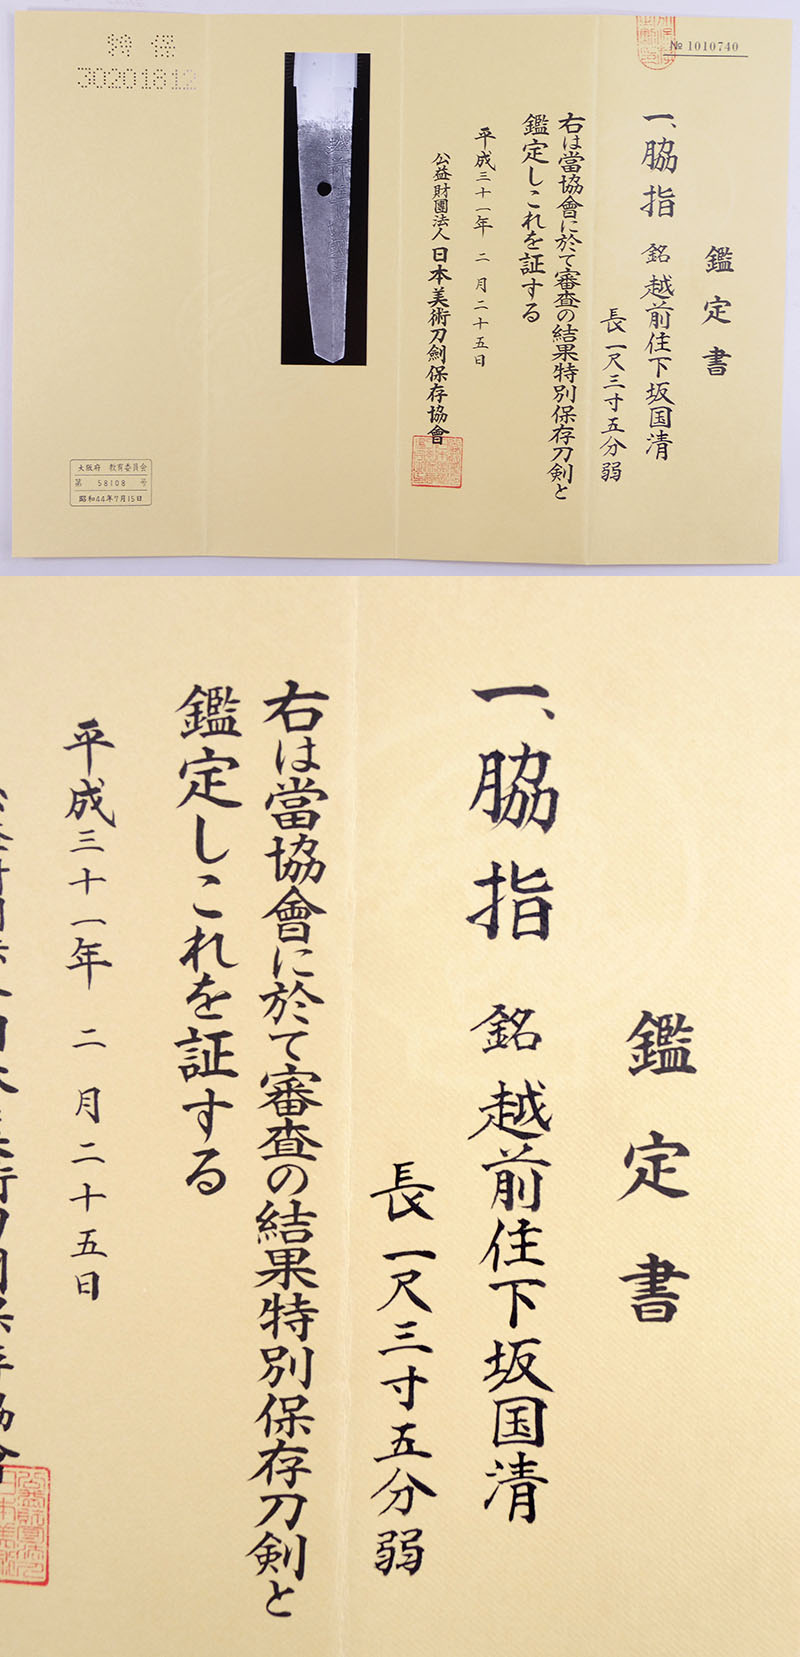 № 1010740
鑑定書
一、脇指 銘 越前住下坂国清
長一尺三寸五分弱
右は當協會に於て審査の結果特別保存刀剣と
鑑定しこれを証する
平成三十一年 二月二十五日
公益財團法人 日本美術刀劍保存協會
特保
30201812
大阪府 教育委員会
第 58108 号
昭和44年7月15日
鑑定書
一、脇指 銘 越前住下坂国清
長一尺三寸五分弱
右は當協會に於て審査の結果特別保存刀剣と
鑑定しこれを証する
平成三十一年 二月二十五日